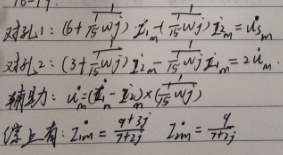 对孔1：(6+\frac{1}{\frac{1}{15}ωj}) \dot{I}_{1m}-(\frac{1}{\frac{1}{15}ωj}) \dot{I}_{2m}=\dot{u}_{sm}
对孔2：(3+\frac{1}{\frac{1}{15}ωj}) \dot{I}_{2m}-\frac{1}{\frac{1}{15}ωj} \dot{I}_{1m}=2\dot{u}_{m}.
辅助：\dot{u}_{m}=(\dot{I}_{1m}-\dot{I}_{2m})×(\frac{1}{\frac{1}{15}ωj})
综上有：\dot{I}_{1m}=\frac{9+3j}{7+2j} \dot{I}_{2m}=\frac{9}{7+2j}